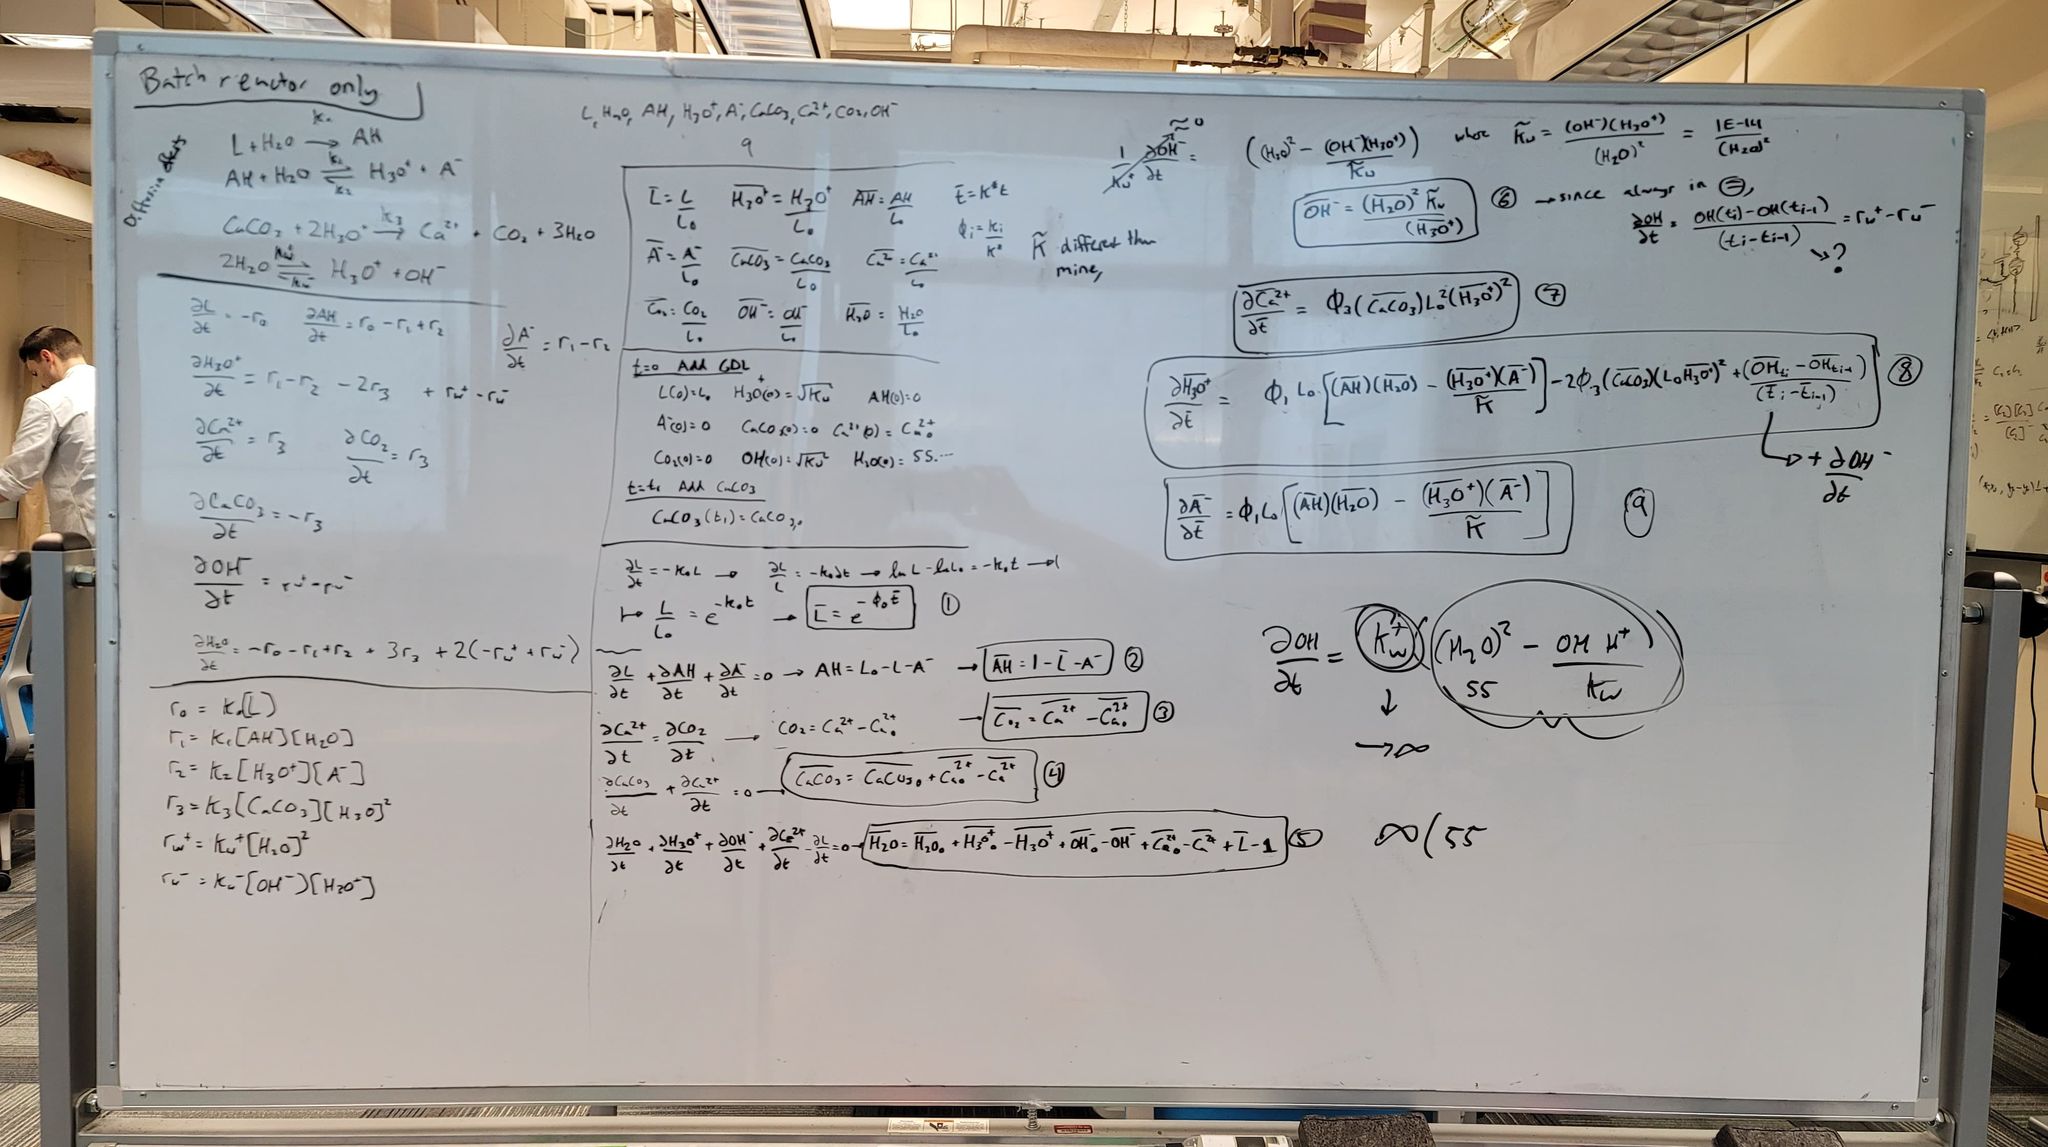 Batch reactor only
L + H₂O →(k₀) AH
AH + H₂O ⇌(k₁, k₂) H₃O⁺ + A⁻
CaCO₃ + 2H₃O⁺ →(k₃) Ca²⁺ + CO₂ + 3H₂O
2H₂O ⇌(kw⁺, kw⁻) H₃O⁺ + OH⁻
∂L/∂t = -r₀  ∂AH/∂t = r₀ - r₁ + r₂  ∂A⁻/∂t = r₁ - r₂
∂H₃O⁺/∂t = r₁ - r₂ - 2r₃ + rw⁺ - rw⁻
∂Ca²⁺/∂t = r₃  ∂CO₂/∂t = r₃
∂CaCO₃/∂t = -r₃
∂OH⁻/∂t = rw⁺ - rw⁻
∂H₂O/∂t = -r₀ - r₁ + r₂ + 3r₃ + 2(-rw⁺ + rw⁻)
r₀ = k₀[L]
r₁ = k₁[AH][H₂O]
r₂ = k₂[H₃O⁺][A⁻]
r₃ = k₃[CaCO₃][H₃O]²
rw⁺ = kw⁺[H₂O]²
rw⁻ = kw⁻[OH⁻][H₃O⁺]
L, H₂O, AH, H₃O⁺, A⁻, CaCO₃, Ca²⁺, CO₂, OH⁻
9
L̄ = L/L₀  H̄₃O⁺ = H₃O⁺/L₀  ĀH̄ = AH/L₀  t̄ = k*t
Ā⁻ = A⁻/L₀  C̄aCO₃ = CaCO₃/L₀  C̄a²⁺ = Ca²⁺/L₀  ϕᵢ = kᵢ/k*
C̄O₂ = CO₂/L₀  ŌH⁻ = OH⁻/L₀  H̄₂O = H₂O/L₀
K̃ different than
mine,
t=0 Add GDL
L(0)=L₀  H₃O⁺(0)=√Kw  AH(0)=0
A⁻(0)=0  CaCO₃(0)=0  Ca²⁺(0)=Ca₀²⁺
CO₂(0)=0  OH(0)=√Kw  H₂O(0)=55....
t=t₁ Add CaCO₃
CaCO₃(t₁)=CaCO₃,₀
∂L/∂t = -k₀L → ∂L/L = -k₀∂t → ln L - ln L₀ = -k₀t →
↦ L/L₀ = e^(-k₀t) → L̄ = e^(-ϕ₀t̄) ①
∂L/∂t + ∂AH/∂t + ∂A⁻/∂t = 0 → AH = L₀ - L - A⁻ → ĀH̄ = 1 - L̄ - Ā⁻ ②
∂Ca²⁺/∂t = ∂CO₂/∂t → CO₂ = Ca²⁺ - Ca₀²⁺ → C̄O₂ = C̄a²⁺ - C̄a₀²⁺ ③
∂CaCO₃/∂t + ∂Ca²⁺/∂t = 0 → C̄aCO₃ = C̄aCO₃₀ + C̄a₀²⁺ - C̄a²⁺ ④
∂H₂O/∂t + ∂H₃O⁺/∂t + ∂OH⁻/∂t + ∂Ca²⁺/∂t - ∂L/∂t = 0 → H̄₂O = H̄₂O₀ + H̄₃O₀⁺ - H̄₃O⁺ + ŌH₀⁻ - ŌH⁻ + C̄a₀²⁺ - C̄a²⁺ + L̄ - 1 ⑤
1/kw⁺ ∂OH⁻/∂t ≈ 0 = ((H₂O)² - (OH⁻)(H₃O⁺)/K̃w) where K̃w = (OH⁻)(H₃O⁺)/(H₂O)² = 1E-14/(H₂O)²
ŌH⁻ = (H̄₂O)² K̃w/(H̄₃O⁺) ⑥ → since always in ⊜,
∂OH/∂t = (OH(tᵢ) - OH(tᵢ₋₁))/(tᵢ - tᵢ₋₁) = rw⁺ - rw⁻
→ ?
∂C̄a²⁺/∂t̄ = ϕ₃(C̄aCO₃)L₀²(H̄₃O⁺)² ⑦
∂H̄₃O⁺/∂t̄ = ϕ₁L₀[(ĀH̄)(H̄₂O) - (H̄₃O⁺)(Ā⁻)/K̃] - 2ϕ₃(C̄aCO₃)(L₀H̄₃O⁺)² + (ŌHtᵢ - ŌHtᵢ₋₁)/(t̄ᵢ - t̄ᵢ₋₁) ⑧
→ + ∂OH⁻/∂t
∂Ā⁻/∂t̄ = ϕ₁L₀[(ĀH̄)(H̄₂O) - (H̄₃O⁺)(Ā⁻)/K̃] ⑨
∂OH/∂t = kw⁺((H₂O)² - OH H⁺/Kw)
55
↓
→∞
∞(55